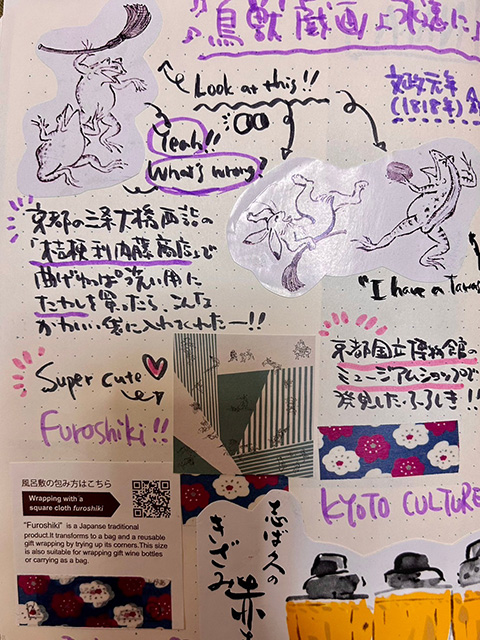 鳥獣戯画よ永遠に
Look at this!!
文政元年
(1818年)
Yeah!!
What's wrong?
京都の三条大橋西詰の
「桔梗利内藤商店」で
曲げわっぱ洗い用に
たわしを買ったら、こんな
かわいい袋に入れてくれたー!!
"I have a Tawas
京都国立博物館の
ミュージアムショップで
発見したふろしき!!
Super cute
Furoshiki!!
風呂敷の包み方はこちら
Wrapping with a
square cloth furoshiki
"Furoshiki" is a Japanse traditional
product.It transforms to a bag and a reusable
gift wrapping by trying up its corners.This size
is also suitable for wrapping gift wine bottles
or carrying as a bag.
KYOTO CULTURE
志ば久の
きざみ
赤